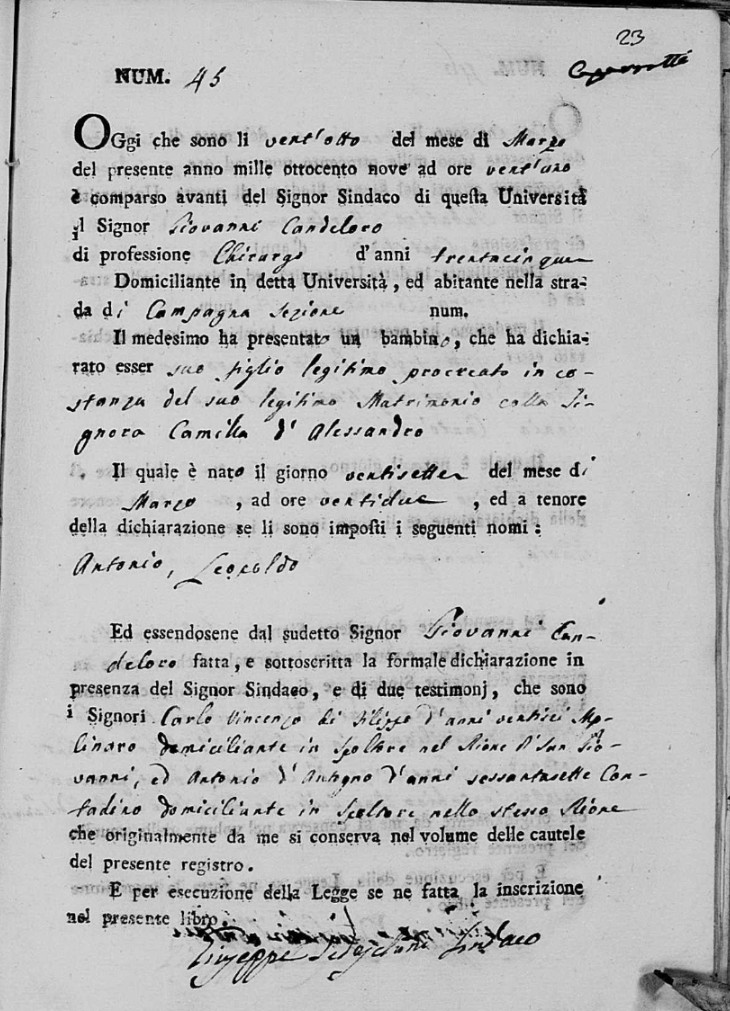 23
NUM. 45
OGgi che sono li vent'otto del mese di Marzo
del presente anno mille ottocento nove ad ore vent'uno
è comparso avanti del Signor Sindaco di questa Università
il Signor Giovanni Candeloro
di professione Chirurgo d'anni trentacinque
Domiciliante in detta Università, ed abitante nella stra-
da di Campagna Sezione num.
Il medesimo ha presentato un bambino, che ha dichia-
rato esser suo figlio legitimo procreato in co-
stanza del suo legitimo Matrimonio colla Si-
gnora Camilla d'Alessandro
Il quale è nato il giorno ventisette del mese di
Marzo , ad ore ventidue , ed a tenore
della dichiarazione se li sono imposti i seguenti nomi :
Antonio, Leopoldo
Ed essendosene dal sudetto Signor Giovanni Can-
deloro fatta, e sottoscritta la formale dichiarazione in
presenza del Signor Sindaco, e di due testimonj, che sono
i Signori Carlo Vincenzo di Filippo d'anni ventisei Mo-
linaro domiciliante in Spoltore nel Rione di San Gio-
vanni, ed Antonio d'Antogno d'anni sessantasette Con-
tadino domiciliante in Spoltore nello stesso Rione
che originalmente da me si conserva nel volume delle cautele
del presente registro.
E per esecuzione della Legge se ne fatta la inscrizione
nel presente libro.
Giuseppe Sindaco